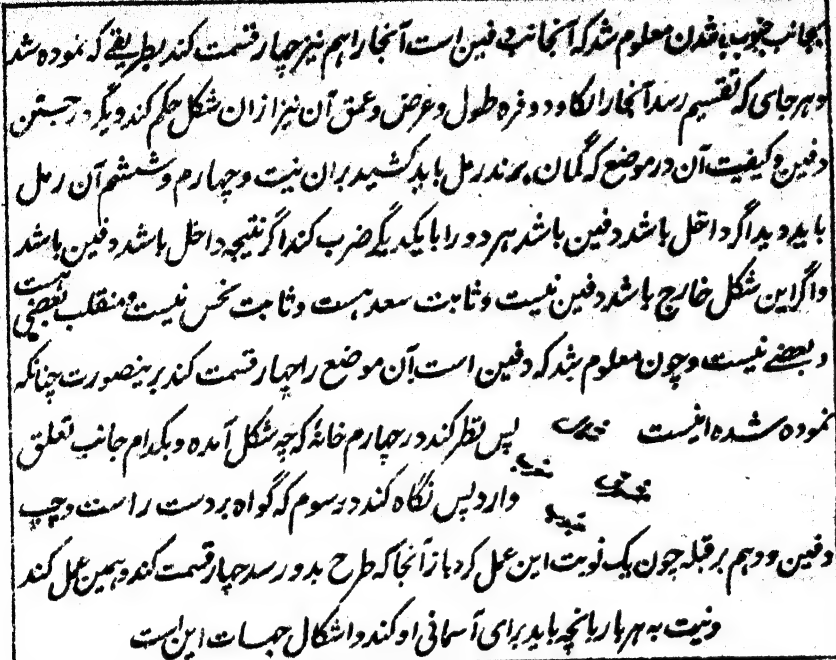 بجانب جنوب باشدن معلوم شد که آنجانب دفین است آنجا را هم نیز چهار قسمت کند بطریقے که نموده شد
و هر جای که تقسیم رسد آنجا را بکاود و فره طول و عرض و عمق آن نیز ازان شکل حکم کند دیگر در جستن
دفین و کیفیت آن در موضع که گمان برند رمل باید کشید بران نیت و چهارم و ششم آن رمل
باید دید اگر داخل باشد دفین باشد هر دو را با یکدیگر ضرب کند اگر نتیجه داخل باشد دفین باشد
و اگر این شکل خارج باشد دفین نیست و ثابت سعد هست و ثابت نحس نیست و منقلب بعضی هست
و بعضے نیست و چون معلوم شد که دفین است آن موضع را چهار قسمت کند برینصورت چنانکه
نموده شده اینست پس نظر کند در چهارم خانهٔ که چه شکل آمده و بکدام جانب تعلق
دارد پس نگاه کند در سوم که گواه بر دست راست و چپ
دفین و دهم بر قبله چون یک نوبت این عمل کرد باز آنجا که طرح بدو رسد چهار قسمت کند و همین عمل کند
و نیت به هر بار بانچه باید برای آسانی او کند و اشکال جهات این است